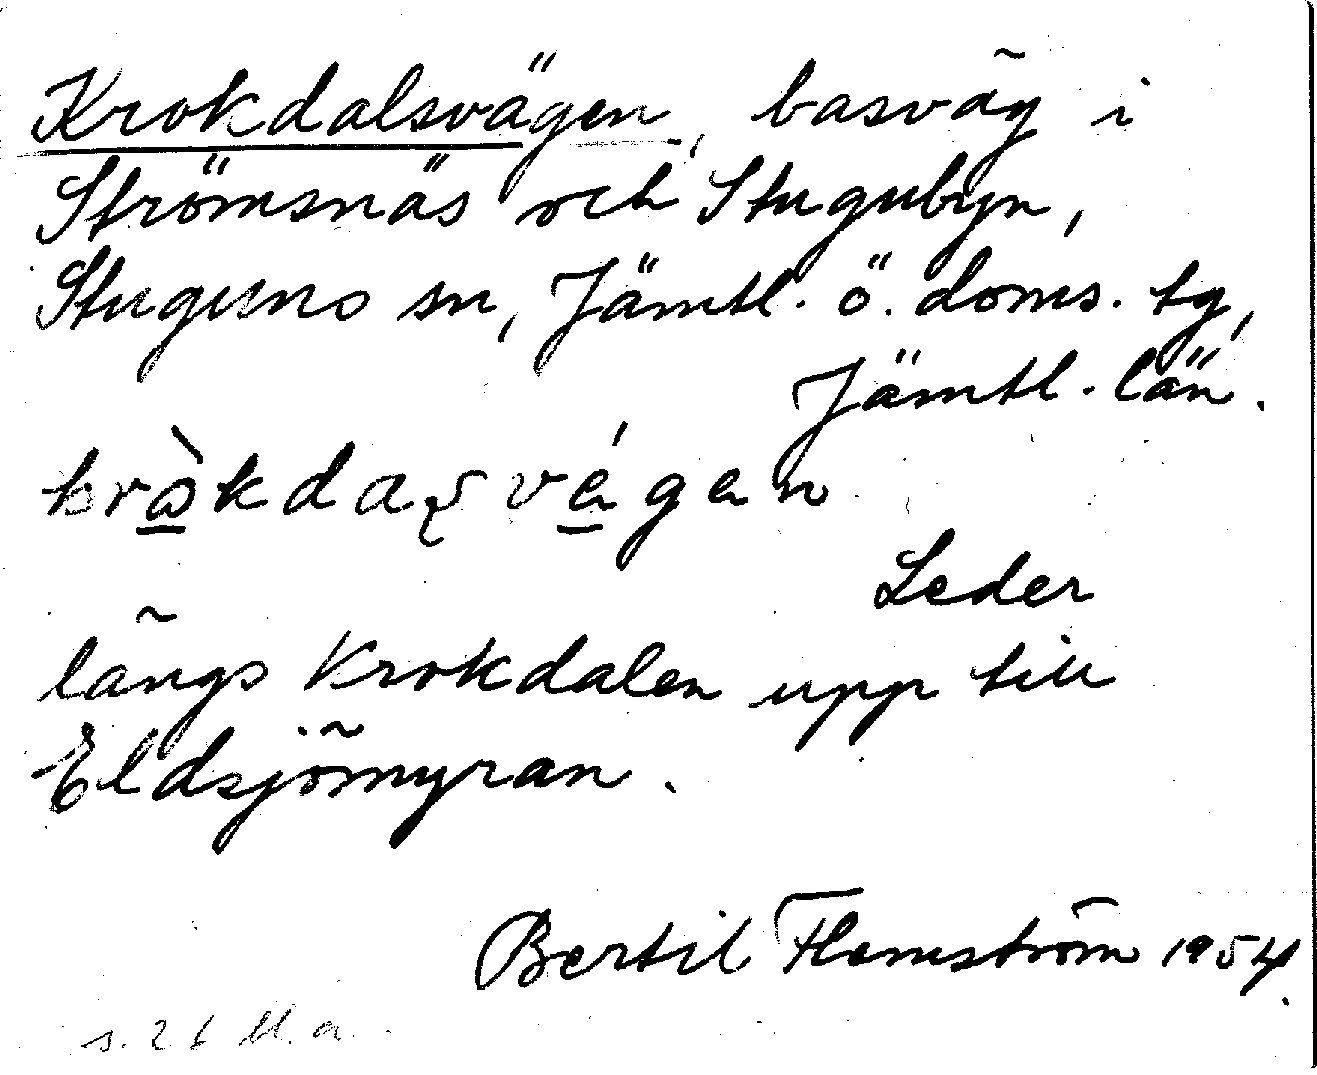 Krokdalsvägen, basväg i
Strömsnäs och Stugubyn,
Stuguns sn, Jämtl. ö. doms. tg,
Jämtl. län.
krò̲kdaꞎvé̲gen
Leder
längs Krokdalen upp till
Eldsjömyran.
Bertil Flemström 1954.
s. 26 bl. a.